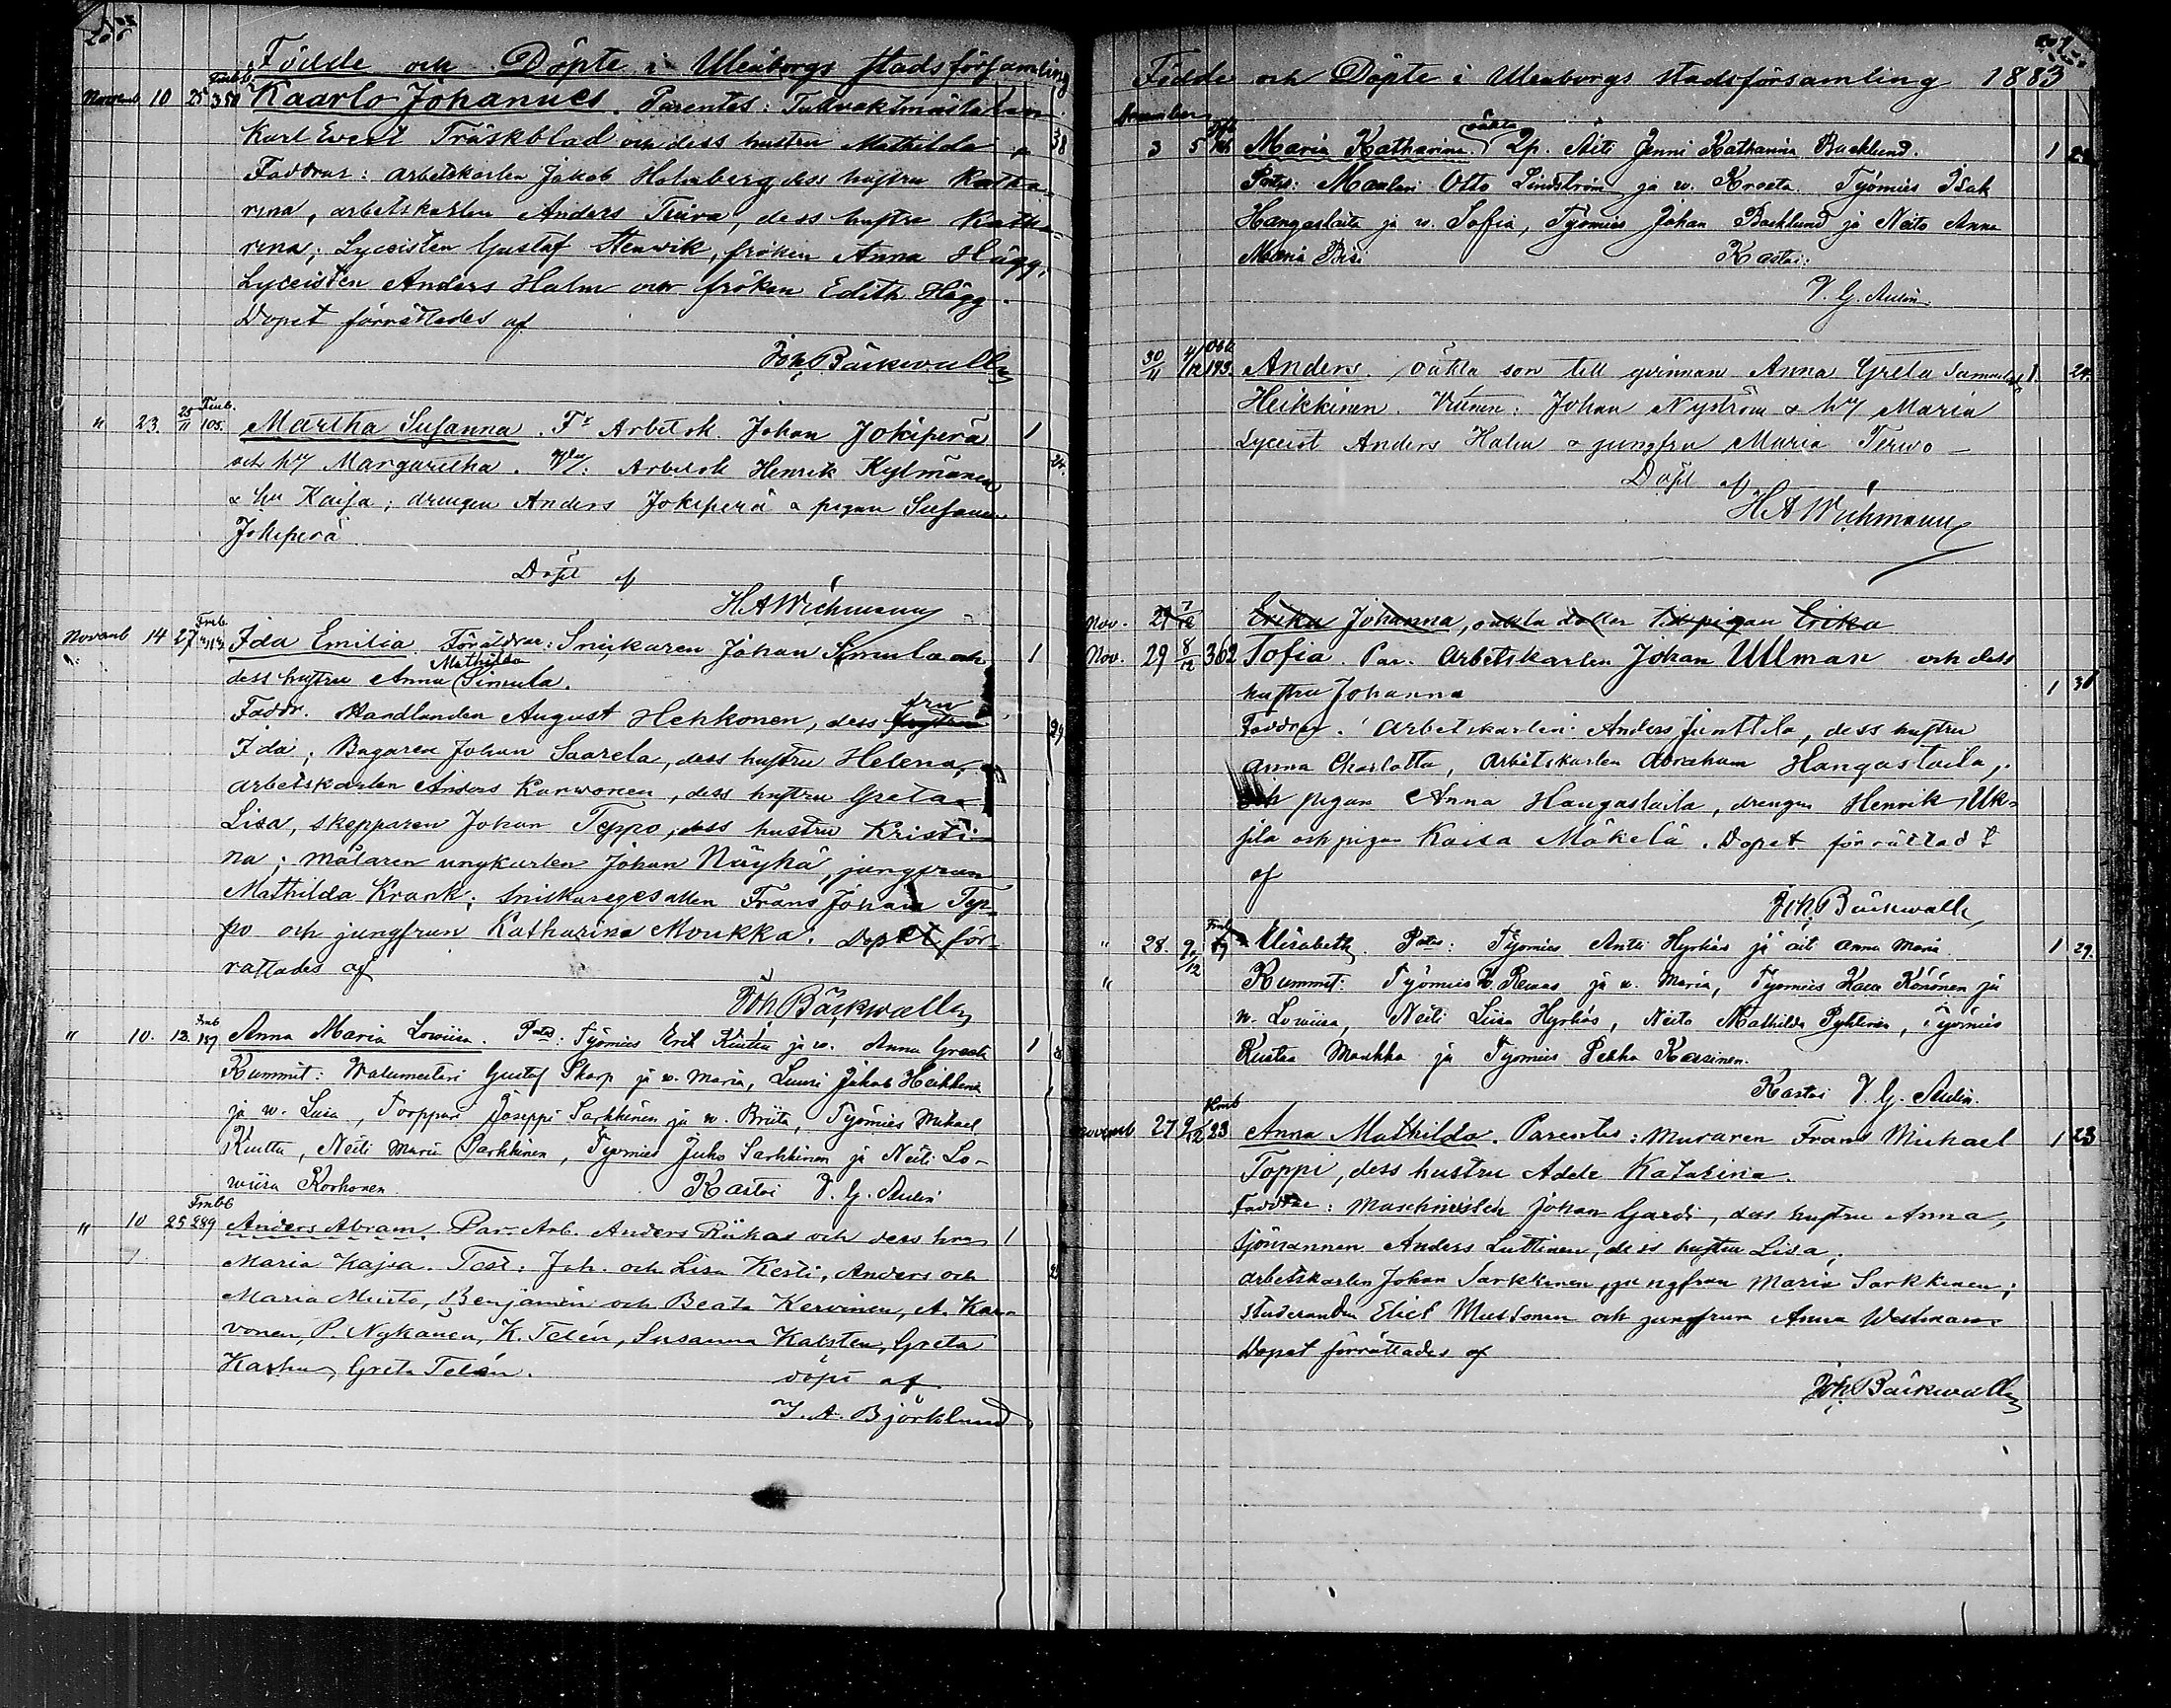 Födde och Döpte i Uleåborgs stadsförsamling
Novemb 10 25 350 Kaarlo Johannes. Parentes:
Karl Evert Träskblad och dess hustru Mathilda 38
Faddrar: arbetskarlen Jakob Holmberg dess hustru Katha-
rina, arbetskarlen Anders Tuira, dess hustru Katha-
rina; Lyceisten Gustaf Stenvik, fröken Anna Hägg,
Lyceisten Anders Halm och fröken Edith Hägg.
Dopet förrättades af
Joh. Bäckwall
" 23. 25/11 105. Martha Susanna. Fr Arbetsk. Johan Jokiperä 1
och hu Margaretha. Arbetsk Henrik Kylmänen 24.
& hu Kaisa; drengen Anders Jokiperä & pigan Susanna
Jokiperä
Döpt af
HA Wichmann
Novemb 14 27 Ida Emilia Föräldrar: Snickaren Johan Simula och 1
dess hustru Anna Mathilda Simula.
Faddr. Handlanden August Hehkonen, dess fru
Ida; Bagaren Johan Saarela, dess hustru Helena,
arbetskarlen Anders Karwonen, dess hustru Greta
Lisa, skepparen Johan Teppo, dess hustru Kristi-
na; målaren ungkarlen Johan Näyhä, jungfrun
Mathilda Krank; Snickaregesällen Frans Johan Tep-
po och jungfrun Katharina Moukka. Dopet för-
rättades af
Joh. Bäckwall
" 10. 13. 157 Anna Maria Lowiisa. Työmies Erik Kiuttu ja w. Anna Greeta 1
Kummit: Walumestari Gustaf Skarp ja w. Maria, Jakob Heikkinen
ja w. Liisa, Torppari Joseppi Sarkkinen ja w. Briita, Työmies Mikael
Kiuttu, Neiti Maria Sarkkinen, Työmies Juho Sarkkinen ja Neiti Lo-
wiisa Korhonen. Kastoi V. G. Aulin
" 10 25 289 Anders Abram. Par. Arb. Anders Riikas och dess hru 1
Maria Kajsa. Test: Joh. och Lisa Kesti, Anders och
Maria Miesto, Benjamin och Beata Kervinen, A. Kar-
vonen, P. Nykänen, K. Telén, Susanna Karsten, Greta
Karhu, Greta Telén.
döpt af
J. A. Björklund
Födde och Döpte i Uleåborgs stadsförsamling 1883
November
3 5 Maria Katharina. oäkta Äiti Jenni Kathariina Backlund. 1
Maalari Otto Lindström ja w. Kreeta. Työmies Isak
Hangaslaita ja w. Sofia, Työmies Johan Backlund ja Neito Anna
Maria Kastoi:
V. G. Aulin
30/11 4/12 193. Anders. oäkta son till qvinnan Anna Greta Samuelsd 1 24.
Heikkinen. Vittnen: Johan Nyström & hu Maria
Lyceist Anders Halm & jungfru Maria Terwo
Döpt af
HA Wichmann
Nov. 29 7/12 Erika Johanna, oäkta dotter till pigan Erika
Nov. 29 8/12 362 Sofia. Par. Arbetskarlen Johan Ullman och dess
hustru Johanna 1 38
Faddrar: Arbetskarlen Anders Junttila, dess hustru
Anna Charlotta, arbetskarlen Abraham Hangaslaita,
och pigan Anna Hangaslaita, drengen Henrik Uk-
jila och pigan Kaisa Mäkelä. Dopet förrättadt
af
Joh. Bäckwall
" 28. 9/12 Elisabeth. Työmies Antti Hyrkäs ja äiti Anna Maria 1 29.
" Kummit: Työmies ja w. Maria, Työmies Könönen ja
w. Lowiisa, Neiti Liisa Hyrkäs, Neito Mathilda Työmies
Kustaa Moukka ja Työmies Pekka Kassinen.
Kastoi V. G. Aulin.
Novemb 27 9/12 23 Anna Mathilda. Parentes: Muraren Frans Michael 1 23
Toppi, dess hustru Adele Katarina.
Faddrar: Maschinisten Johan Gardi, dess hustru Anna,
Sjömannen Anders Luttinen, dess hustru Lisa,
arbetskarlen Johan Sarkkinen, jungfrun Maria Sarkkinen;
Studeranden Eliel Mustonen och jungfrun Anna Westman.
Dopet förrättades af
Joh. Bäckwall